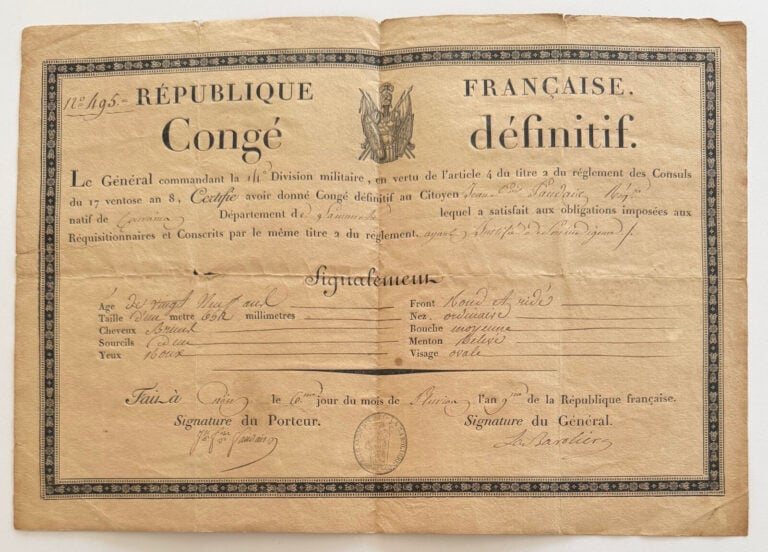 Nº 495.
RÉPUBLIQUE FRANÇAISE.
Congé définitif.
Le Général commandant la 14e Division militaire, en vertu de l'article 4 du titre 2 du réglement des Consuls
du 17 ventose an 8, Certifie avoir donné Congé définitif au Citoyen Jean
natif de Département de lequel a satisfait aux obligations imposées aux
Réquisitionnaires et Conscrits par le même titre 2 du réglement, ayant
Signalement
Agé de vingt neuf ans
Taille d'un metre millimetres
Cheveux Bruns
Sourcils idem
Yeux Roux
Front Rond et ridé
Nez ordinaire
Bouche moyenne
Menton
Visage ovale
Fait à le 6 jour du mois de l'an 9 de la République française.
Signature du Porteur. Signature du Général.